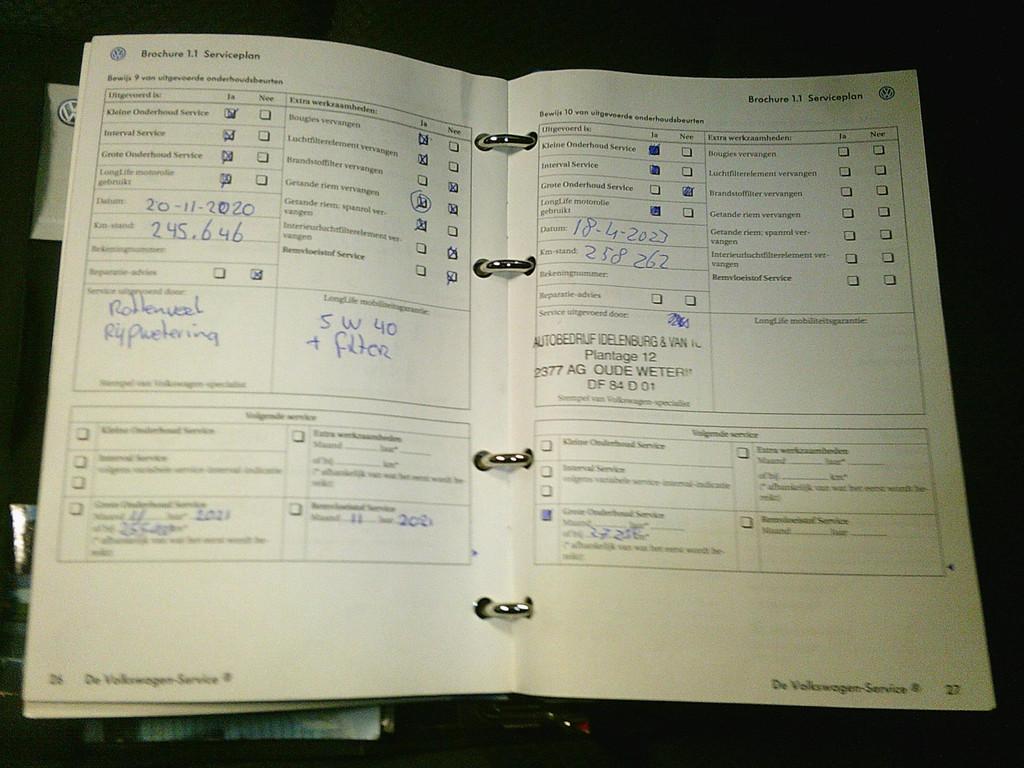 Brochure 1.1 Serviceplan
Bewijs 9 van uitgevoerde onderhoudsbeurten
Uitgevoerd is: Ja Nee
Kleine Onderhoud Service
Interval Service
Grote Onderhoud Service
LongLife motorolie
gebruikt
Datum: 20-11-2020
Km-stand: 245.646
Rekeningnummer:
Reparatie-advies
Extra werkzaamheden: Ja Nee
Bougies vervangen
Luchtfilterelement vervangen
Brandstoffilter vervangen
Getande riem vervangen
Getande riem; spanrol ver-
vangen
Interieurluchtfilterelement ver-
vangen
Remvloeistof Service
Service uitgevoerd door:
Rijpwetering
Stempel van Volkswagen-specialist
LongLife mobiliteitsgarantie:
5 W 40
+ filter
Volgende service
Kleine Onderhoud Service
Interval Service
volgens variabele service-interval-indicatie
Grote Onderhoud Service
Maand 11 jaar* 2021
of bij km*
(* afhankelijk van wat het eerst wordt be-
reikt)
Extra werkzaamheden
Maand jaar*
of bij km*
(* afhankelijk van wat het eerst wordt be-
reikt)
Remvloeistof Service
Maand 11 jaar 2021
26 De Volkswagen-Service ®
Brochure 1.1 Serviceplan
Bewijs 10 van uitgevoerde onderhoudsbeurten
Uitgevoerd is: Ja Nee
Kleine Onderhoud Service
Interval Service
Grote Onderhoud Service
LongLife motorolie
gebruikt
Datum: 18-4-2023
Km-stand: 258 262
Rekeningnummer:
Reparatie-advies
Extra werkzaamheden: Ja Nee
Bougies vervangen
Luchtfilterelement vervangen
Brandstoffilter vervangen
Getande riem vervangen
Getande riem; spanrol ver-
vangen
Interieurluchtfilterelement ver-
vangen
Remvloeistof Service
Service uitgevoerd door:
AUTOBEDRIJF IDELENBURG & VAN
Plantage 12
2377 AG OUDE WETERI
DF 84 D 01
Stempel van Volkswagen-specialist
LongLife mobiliteitsgarantie:
Volgende service
Kleine Onderhoud Service
Interval Service
volgens variabele service-interval-indicatie
Grote Onderhoud Service
Maand jaar*
of bij km*
(* afhankelijk van wat het eerst wordt be-
reikt)
Extra werkzaamheden
Maand jaar*
of bij km*
(* afhankelijk van wat het eerst wordt be-
reikt)
Remvloeistof Service
Maand jaar
De Volkswagen-Service ® 27